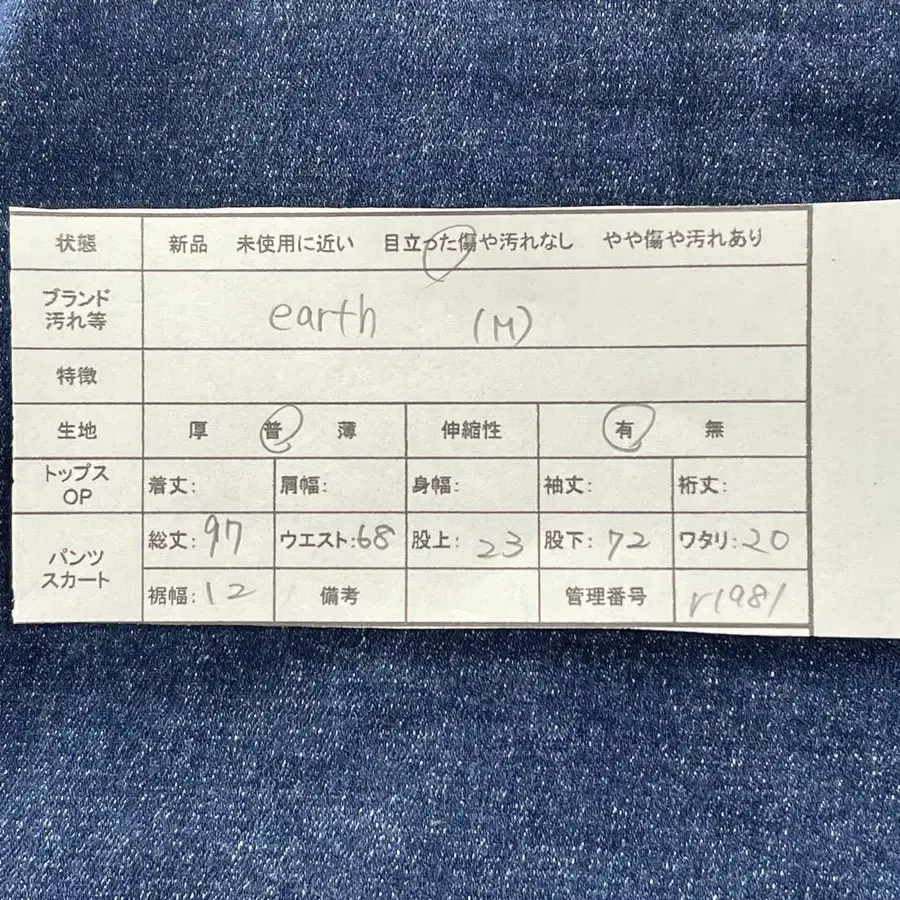 状態 新品 未使用に近い 目立った傷や汚れなし やや傷や汚れあり
ブランド
汚れ等
earth (M)
特徴
生地 厚 普 薄 伸縮性 有 無
トップス
OP
着丈: 肩幅: 身幅: 袖丈: 裄丈:
パンツ
スカート
総丈: 97 ウエスト: 68 股上: 23 股下: 72 ワタリ: 20
裾幅: 12 備考 管理番号 r1981